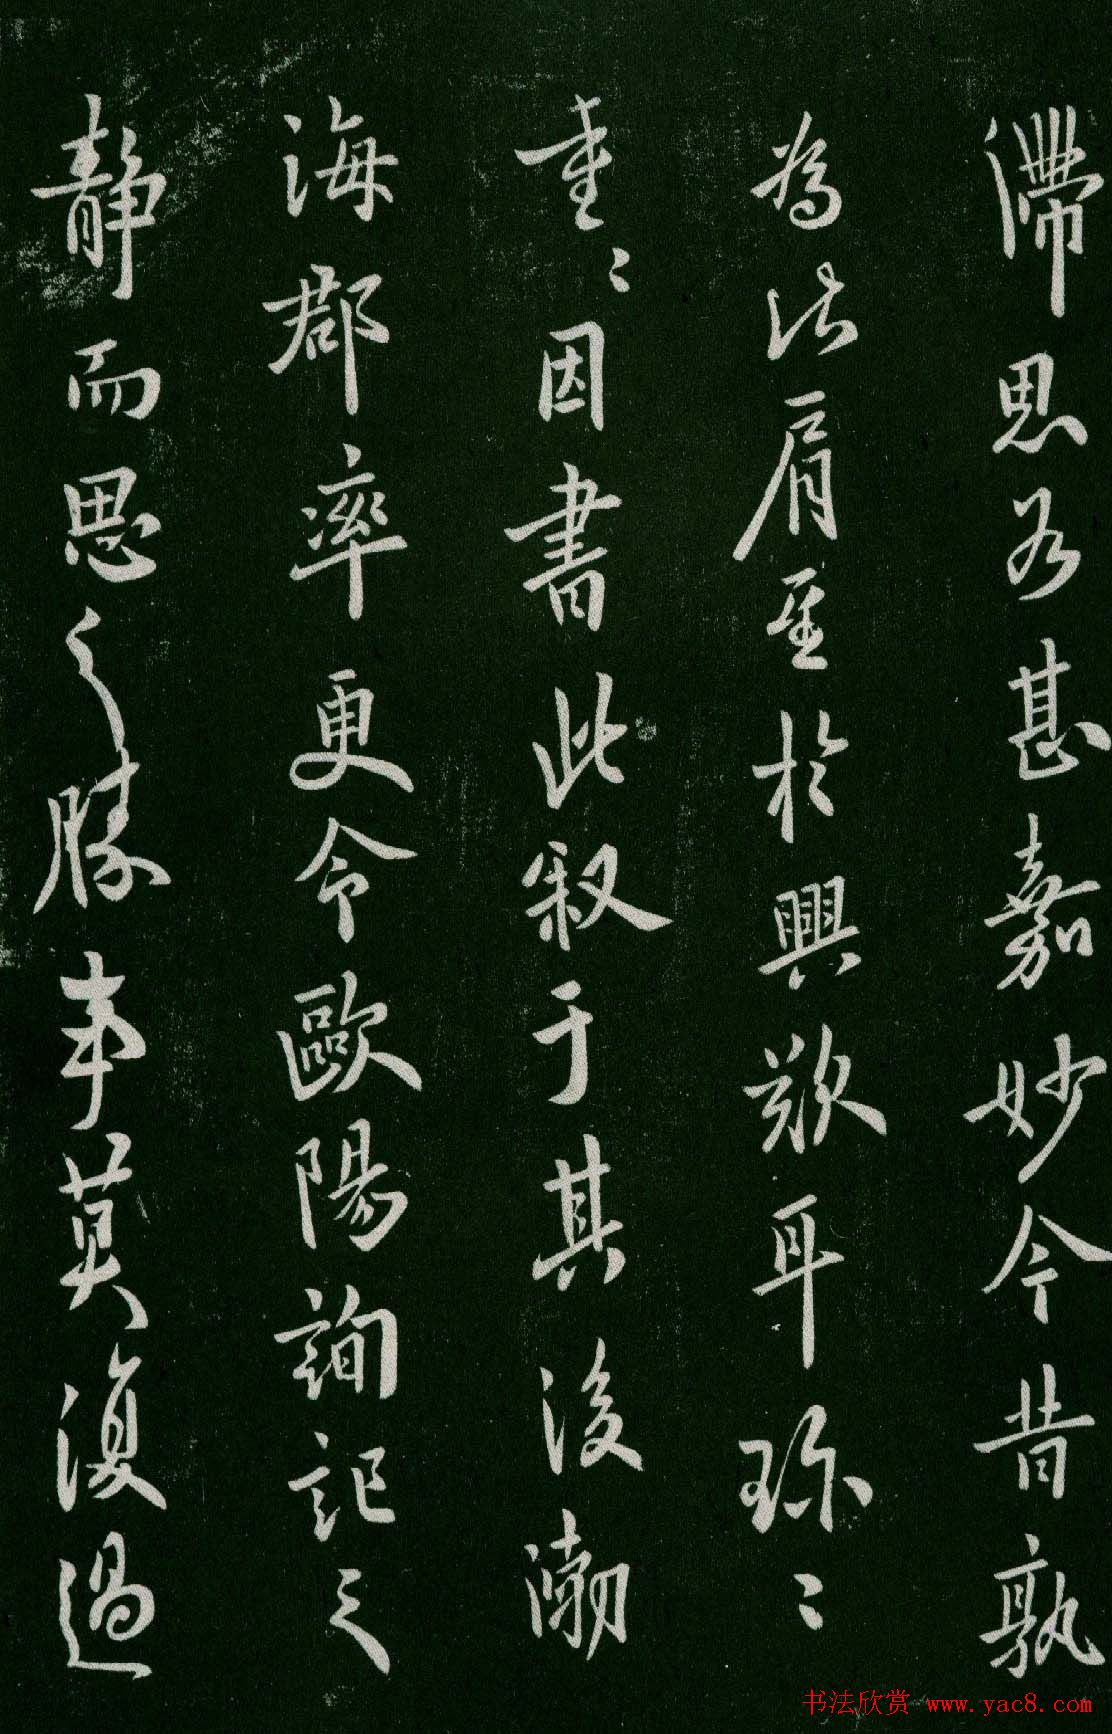 滯思甚嘉妙今昔孰
為比肩至於興歎耳珍々
重々因書此叙于其後渤
海郡率更令歐陽詢記之
静而思之勝事莫復過
书法欣赏 www.yac8.com